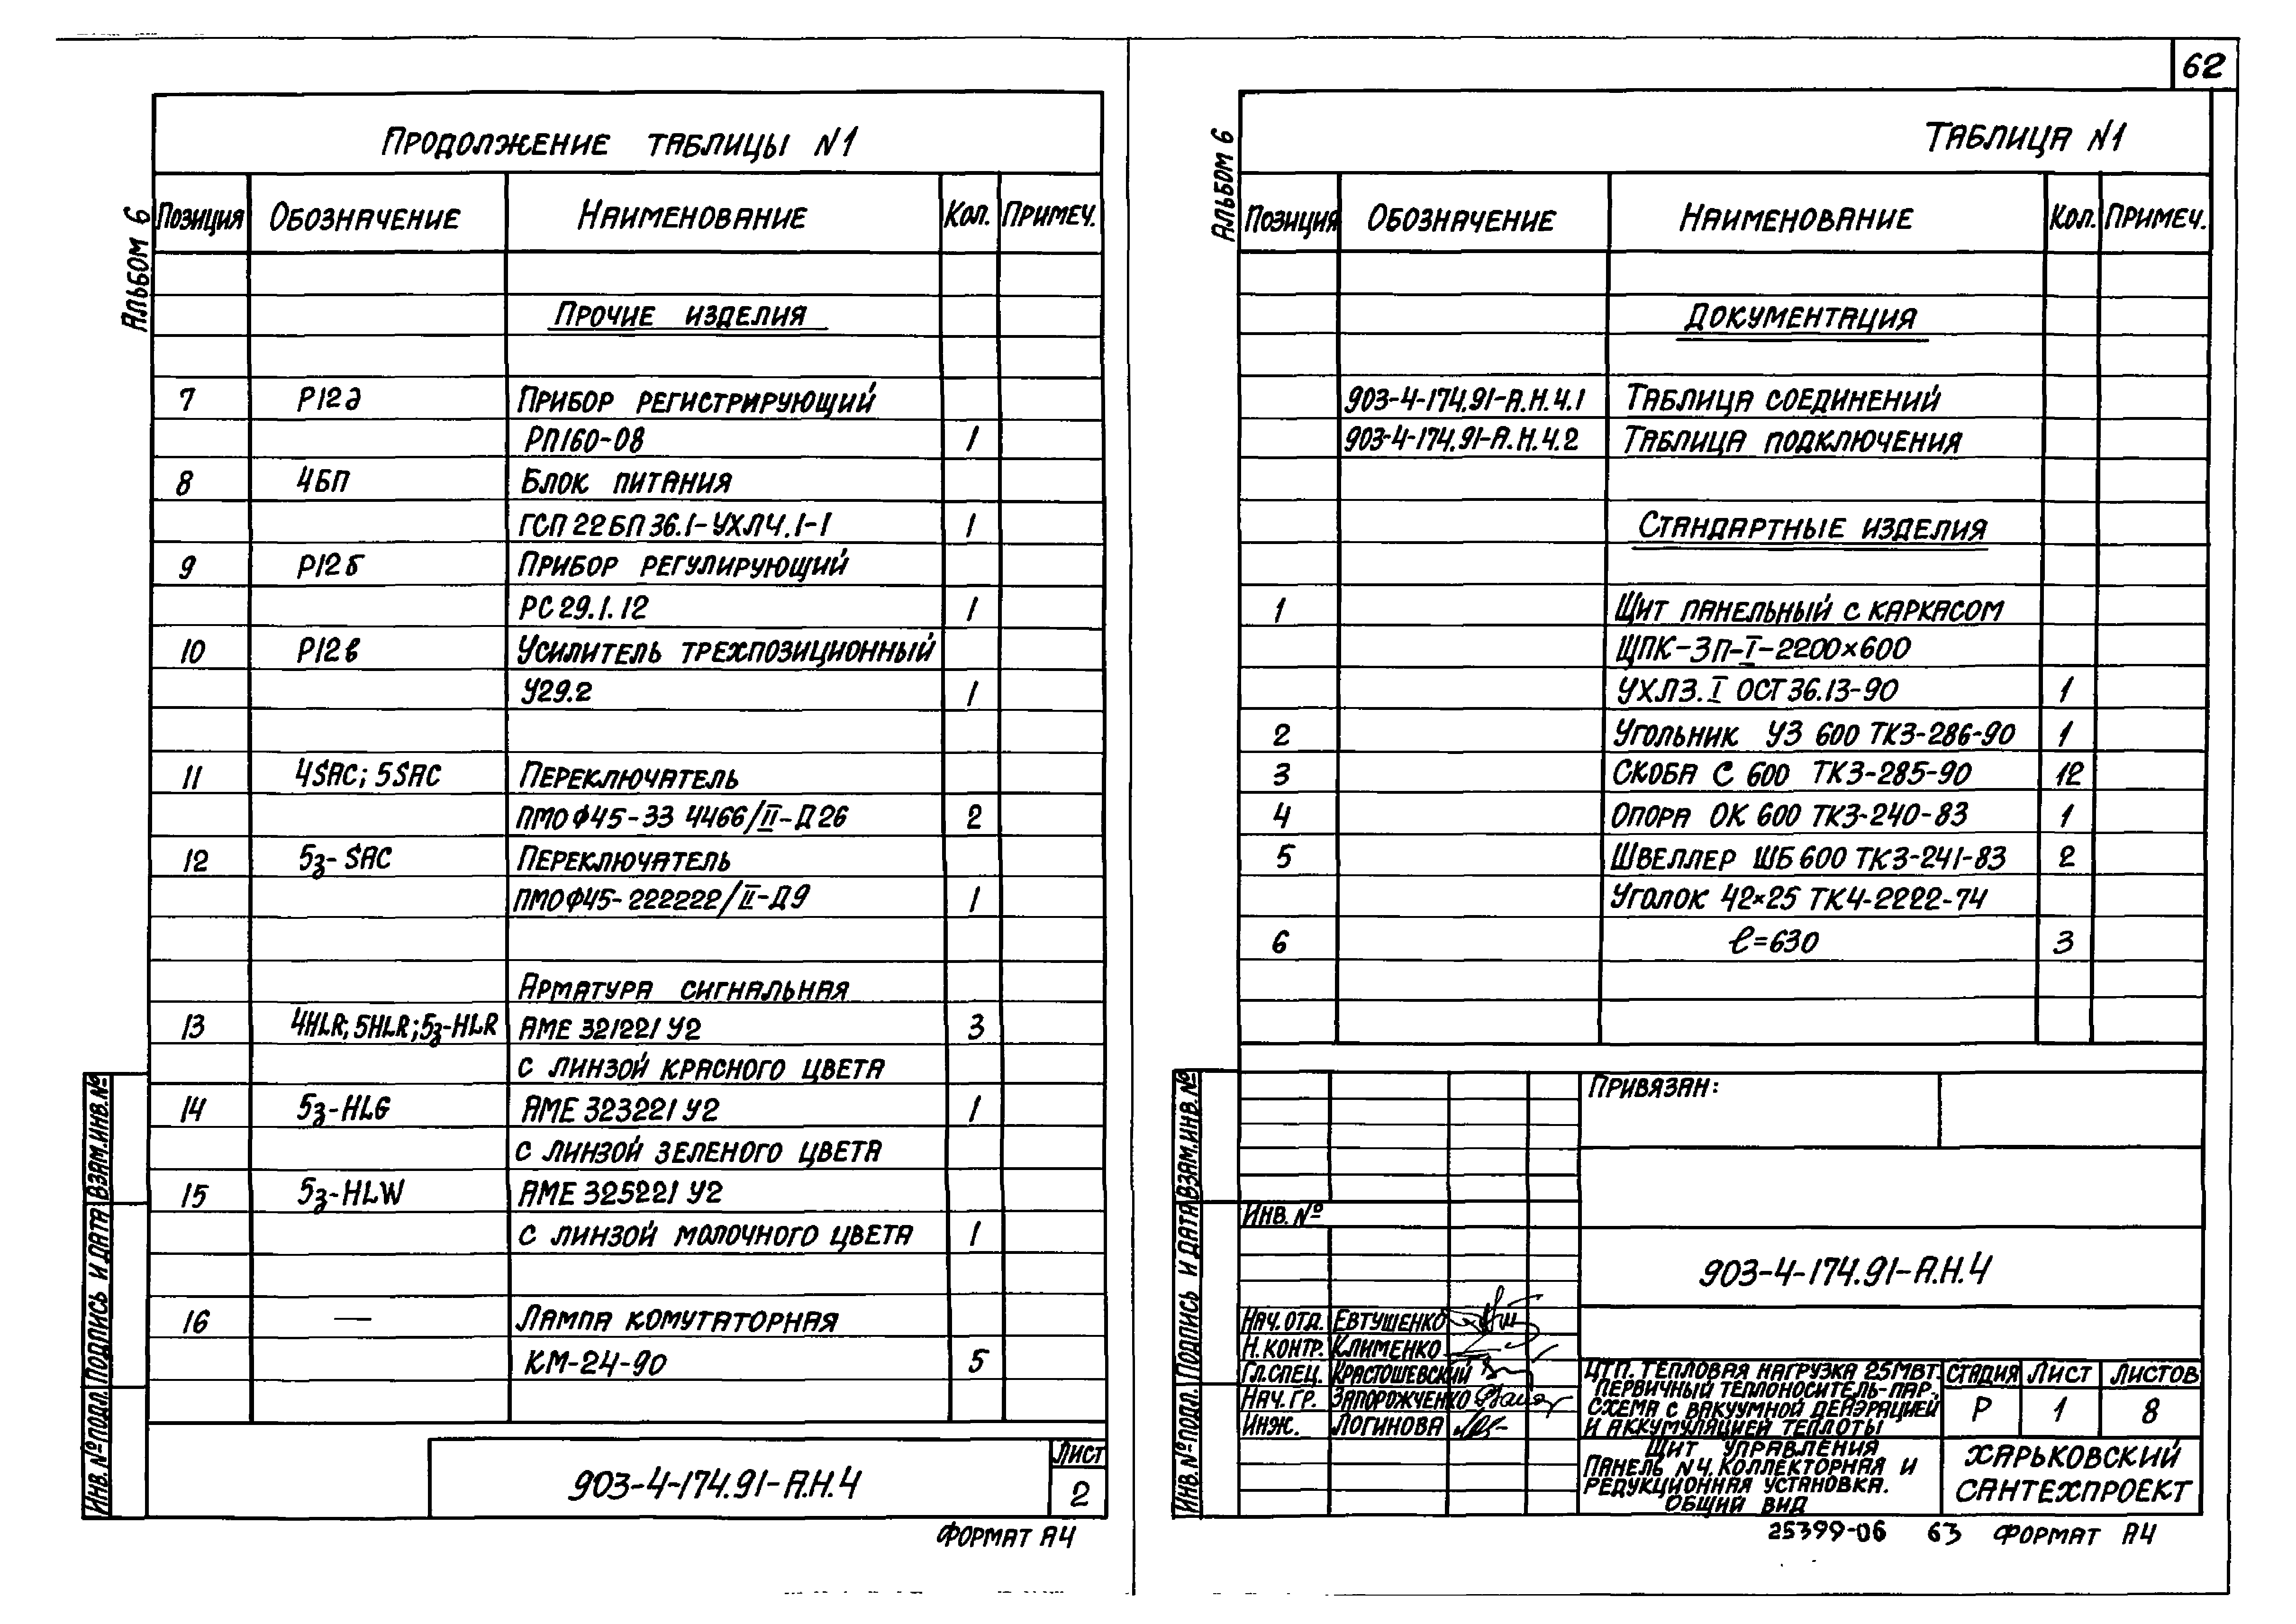 62
Альбом 6
Продолжение таблицы N1
Позиция Обозначение Наименование Кол. Примеч.
Прочие изделия
7 Р12д Прибор регистрирующий
РП160-08 1
8 4БП Блок питания
ГСП 22БП 36.1-УХЛ4.1-1 1
9 Р12б Прибор регулирующий
РС29.1.12 1
10 Р12в Усилитель трехпозиционный
У29.2 1
11 4SAC; 5SAC Переключатель
ПМОФ45-33 4466/II-Д26 2
12 5з-SAC Переключатель
ПМОФ45-222222/II-Д9 1
Арматура сигнальная
13 4HLR; 5HLR; 5з-HLR АМЕ 321221 У2 3
с линзой красного цвета
14 5з-HLG АМЕ 323221 У2 1
с линзой зеленого цвета
15 5з-HLW АМЕ 325221 У2
с линзой молочного цвета 1
16 — Лампа комутаторная
КМ-24-90 5
Инв. № подл. Подпись и дата Взам. инв. №
903-4-174.91-А.Н.4
Лист
2
Формат А4
Альбом 6
Таблица N1
Позиция Обозначение Наименование Кол. Примеч.
Документация
903-4-174.91-А.Н.4.1 Таблица соединений
903-4-174.91-А.Н.4.2 Таблица подключения
Стандартные изделия
1 Щит панельный с каркасом
ЩПК-3П-I-2200×600
УХЛ3.I ОСТ36.13-90 1
2 Угольник У3 600 ТК3-286-90 1
3 Скоба С 600 ТК3-285-90 12
4 Опора ОК 600 ТК3-240-83 1
5 Швеллер ШБ 600 ТК3-241-83 2
Уголок 42×25 ТК4-2222-74
6 ℓ=630 3
Инв. № подл. Подпись и дата Взам. инв. №
Привязан:
Инв. №
903-4-174.91-А.Н.4
Нач. отд. Евтушенко
Н. контр. Клименко
Гл. спец. Крастошевский
Нач. гр. Запорожченко
Инж. Логинова
ЦТП. Тепловая нагрузка 25МВт.
Первичный теплоноситель-пар.
Схема с вакуумной деаэрацией
и аккумуляцией теплоты
Стадия Лист Листов
Р 1 8
Щит управления
Панель N4. Коллекторная и
редукционная установка.
Общий вид
Харьковский
Сантехпроект
25399-06 63 Формат А4